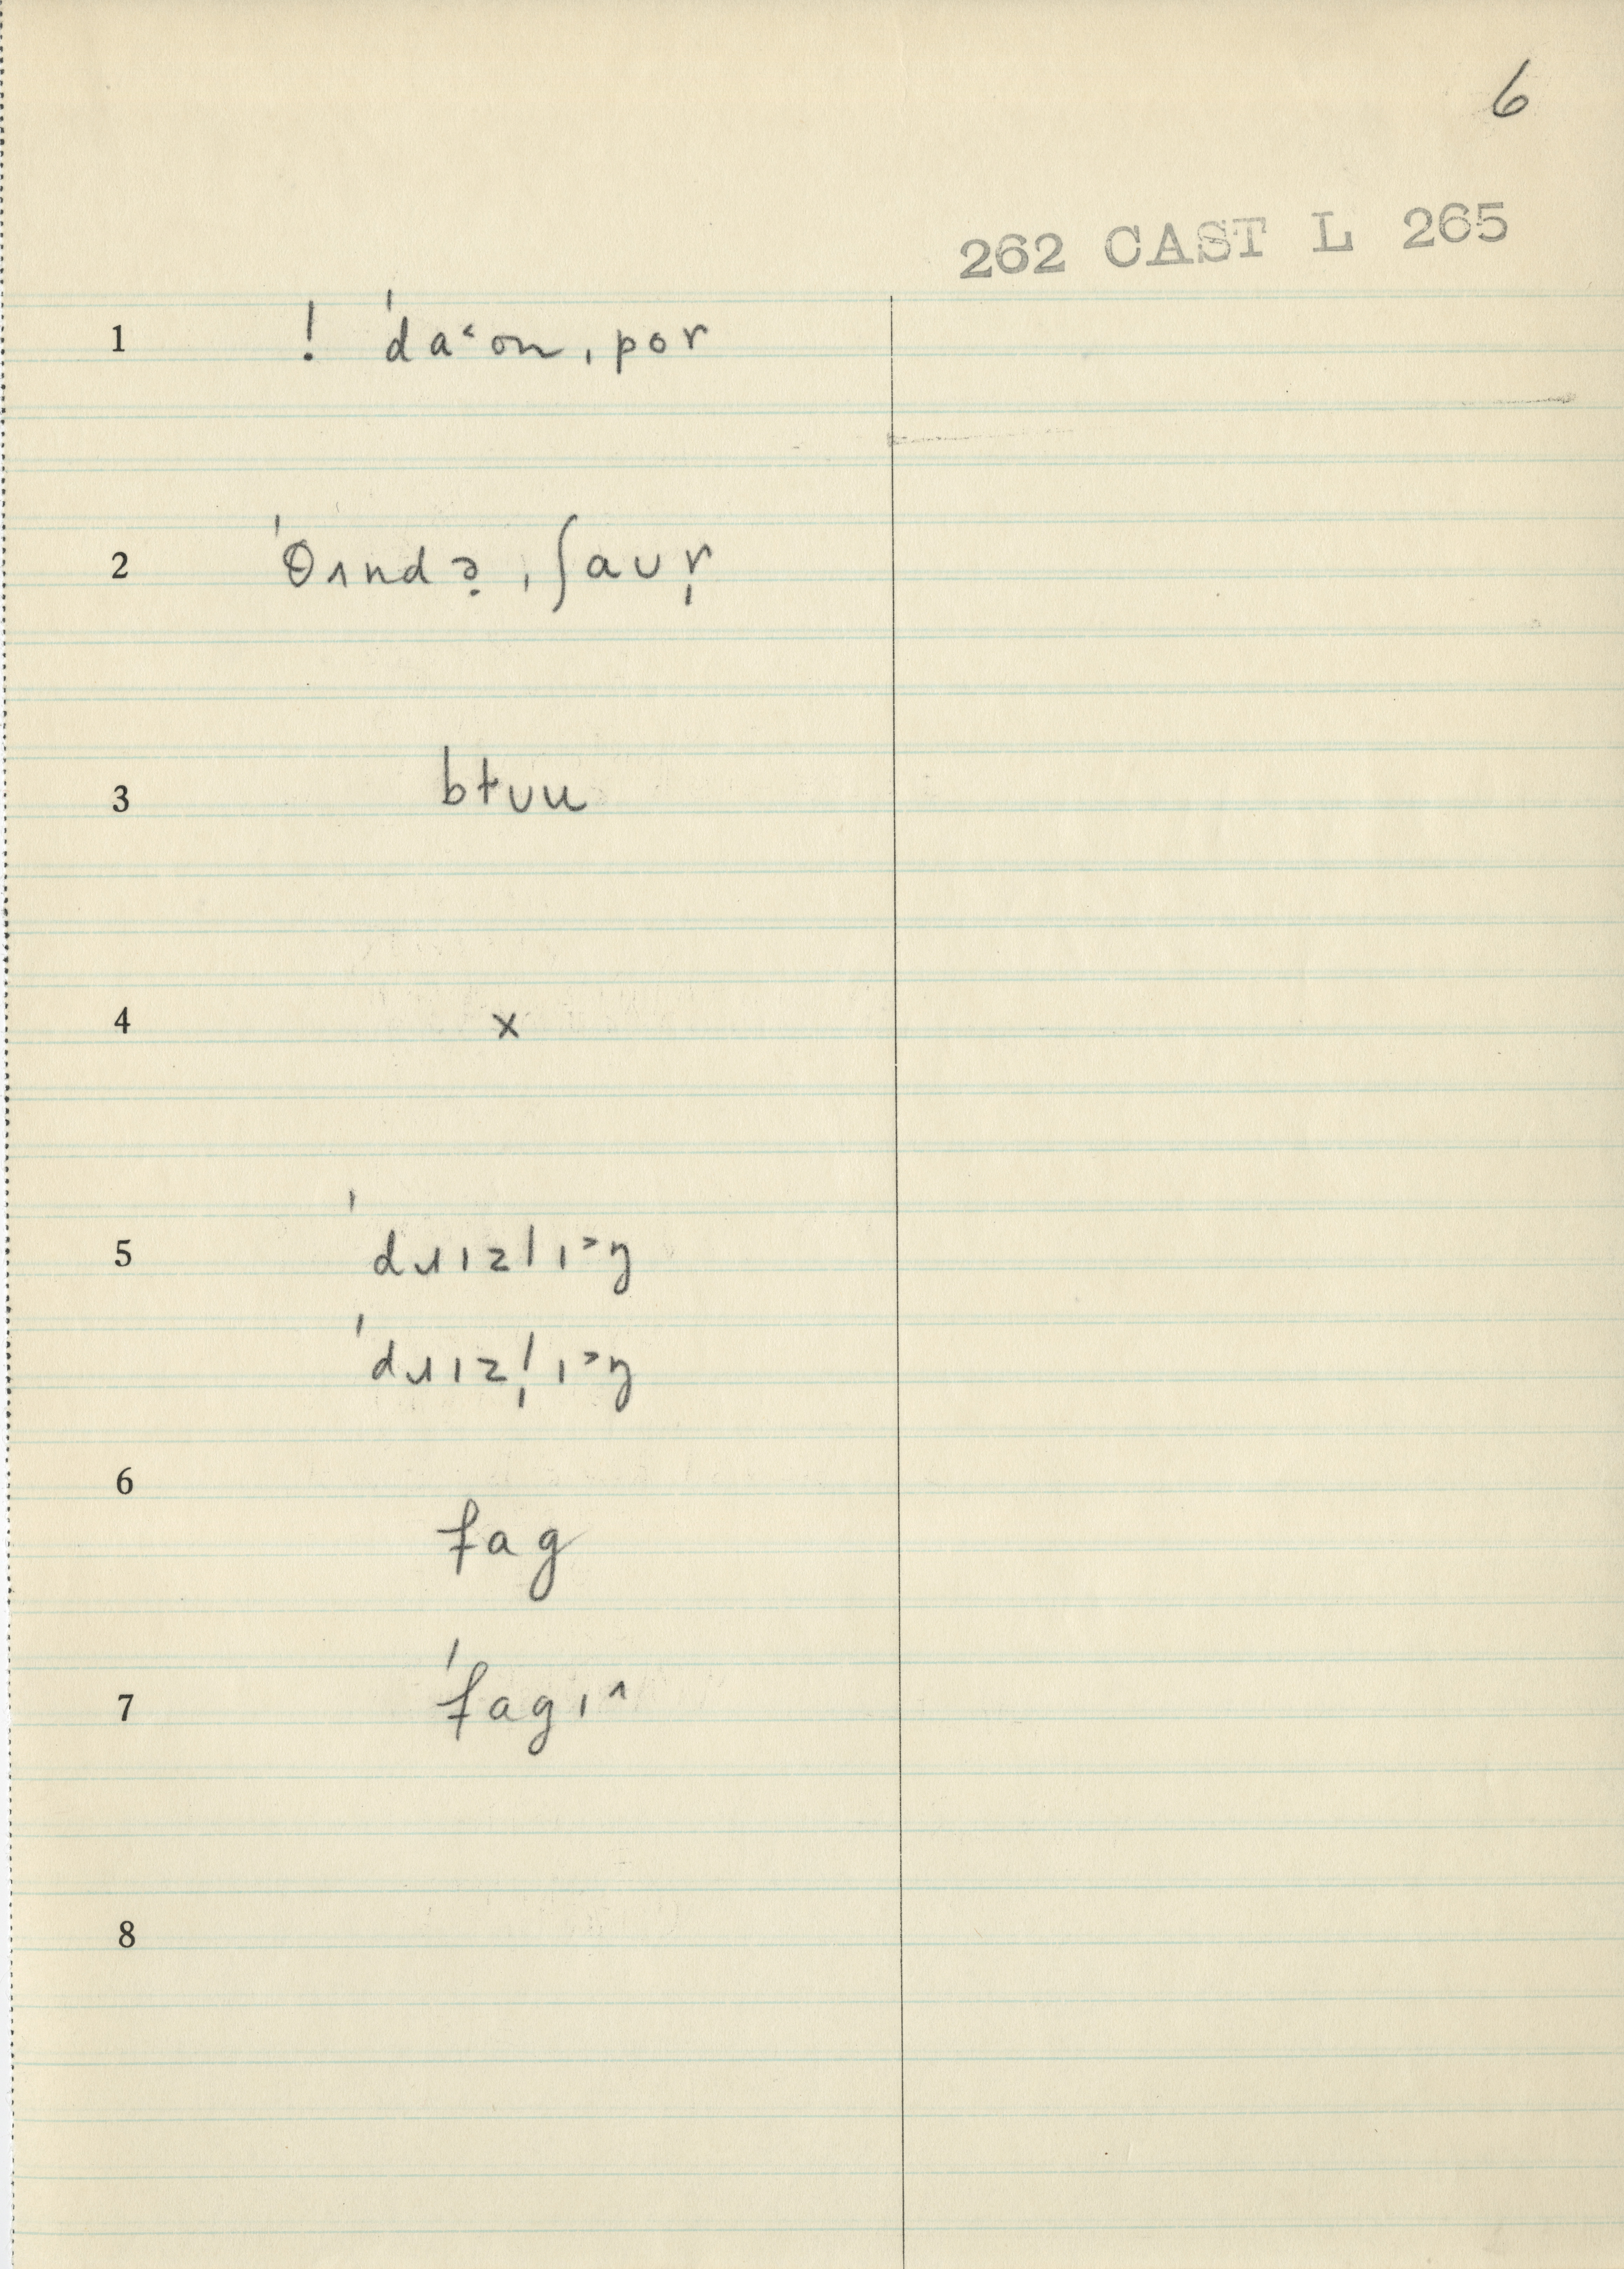 6
262 CAST L 265
1 ! ˈdaˤonˌpor
2 ˈθʌndə̣ˌʃaʊr̩
3 bɫʊu
4 x
5 ˈdɹɪzlɪ˃ŋ
ˈdɹɪzl̩ɪ˃ŋ
6 fag
7 ˈfagɪ˄
8